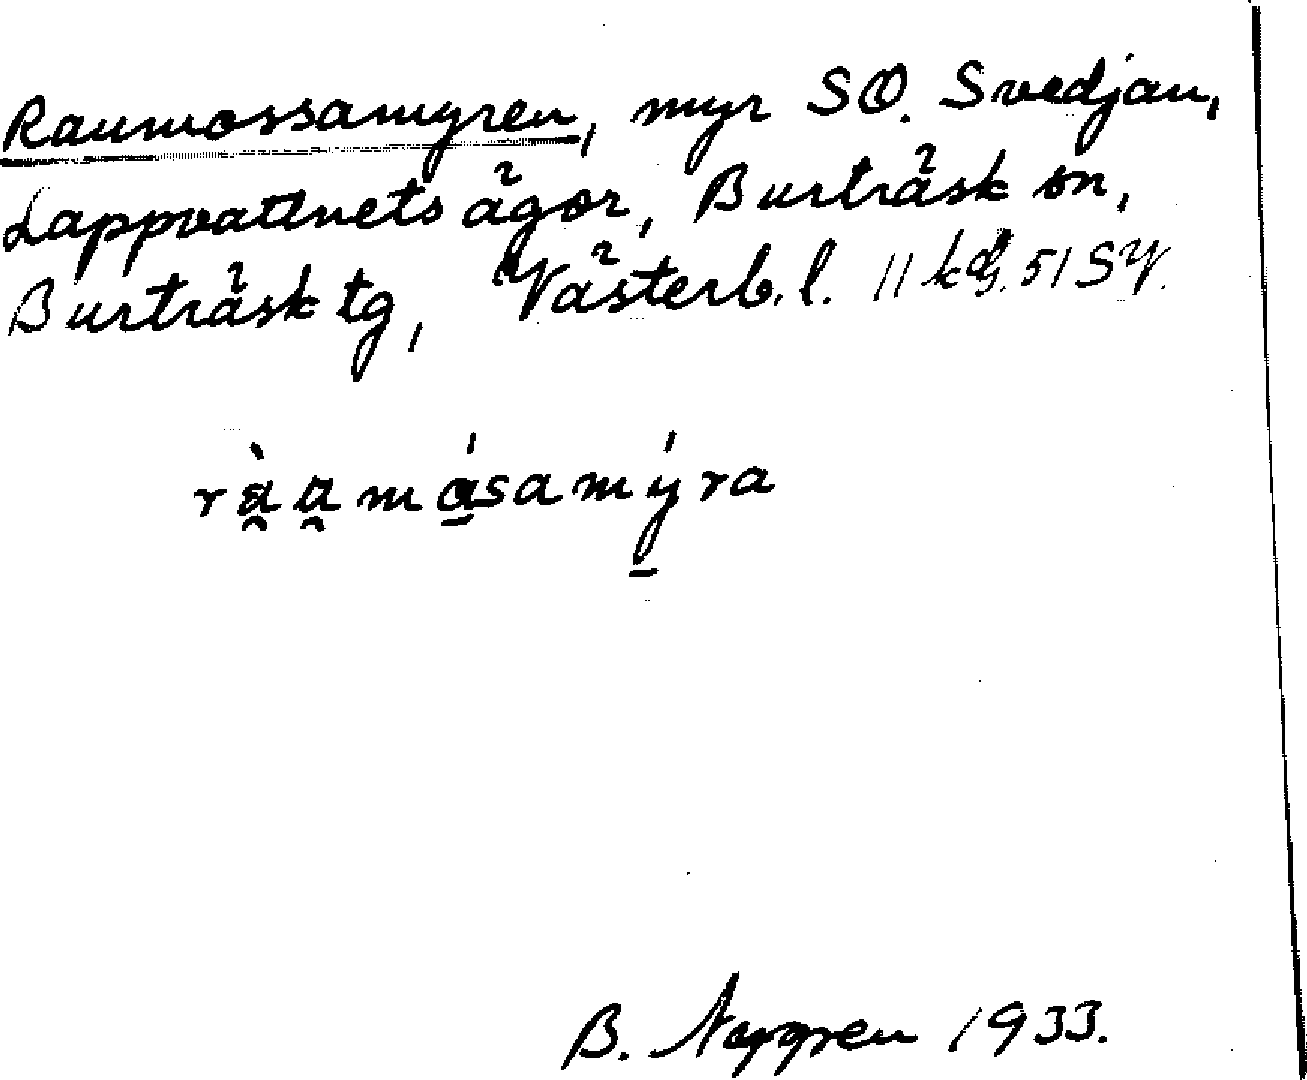 Raumossamyren, myr SO. Svedjan,
Lappvattnets ägor, Burträsk sn,
Burträsk tg, Västerb. l. 51 SY.
ràa̯màsamýra
B. 1933.